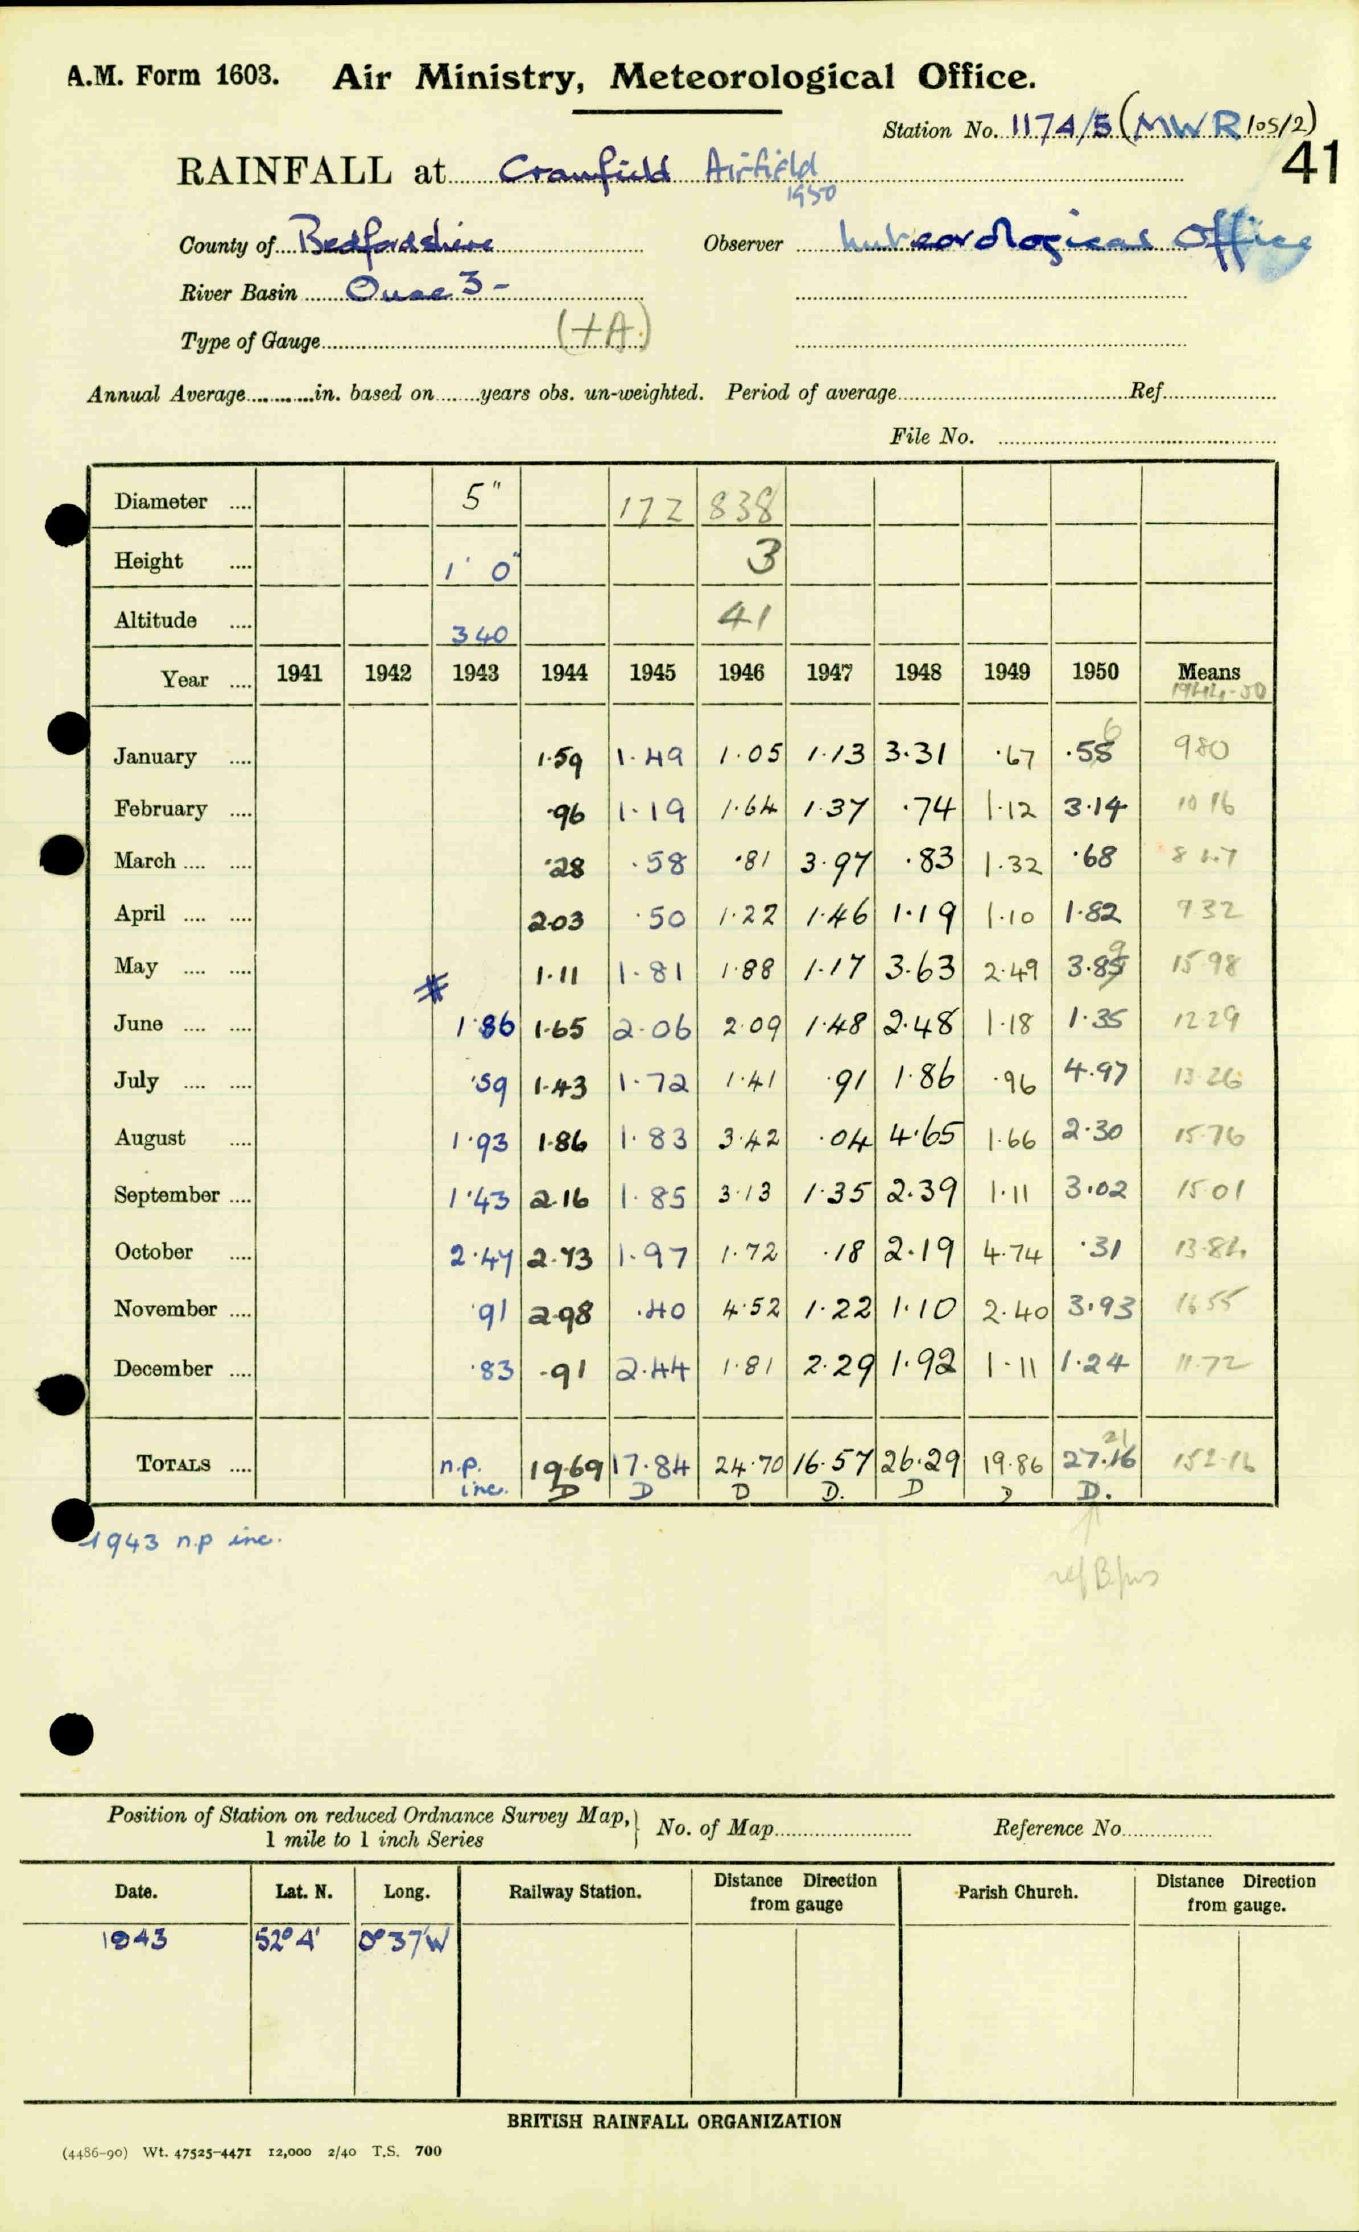 A.M. Form 1603. Air Ministry, Meteorological Office.
Station No. 1174/5 (MWR 105/2)
41
RAINFALL at Cranfield Airfield
1950
County of Bedfordshire Observer Meteorological Office
River Basin Ouse 3 -
Type of Gauge (+A)
Annual Average in. based on years obs. un-weighted. Period of average Ref.
File No.
Diameter .... 5" 172 838
Height .... 1' 0" 3
Altitude .... 340 41
Year .... 1941 1942 1943 1944 1945 1946 1947 1948 1949 1950 Means
1944-50
6
January .... 1.59 1.49 1.05 1.13 3.31 .67 .55 9 80
February .... .96 1.19 1.64 1.37 .74 1.12 3.14 10 16
March .... .... .28 .58 .81 3.97 .83 1.32 .68 8 4.7
April .... .... 2.03 .50 1.22 1.46 1.19 1.10 1.82 9 32
9
May .... .... 1.11 1.81 1.88 1.17 3.63 2.49 3.85 15.98
June .... .... 1.86 1.65 2.06 2.09 1.48 2.48 1.18 1.35 12 29
July .... .... .59 1.43 1.72 1.41 .91 1.86 .96 4.97 13.26
August .... 1.93 1.86 1.83 3.42 .04 4.65 1.66 2.30 15.76
September .... 1.43 2.16 1.85 3.13 1.35 2.39 1.11 3.02 15 01
October .... 2.47 2.73 1.97 1.72 .18 2.19 4.74 .31 13.84
November .... .91 2.98 .40 4.52 1.22 1.10 2.40 3.93 16 55
December .... .83 .91 2.44 1.81 2.29 1.92 1.11 1.24 11.72
21
TOTALS .... n.p. 19.69 17.84 24.70 16.57 26.29 19.86 27.16 152.16
inc. D D D D. D D D.
1943 n.p inc.
Position of Station on reduced Ordnance Survey Map,
1 mile to 1 inch Series
No. of Map Reference No.
Date. Lat. N. Long. Railway Station. Distance Direction from gauge Parish Church. Distance Direction from gauge.
1943 52° 4' 0° 37'W
BRITISH RAINFALL ORGANIZATION
(4486-90) Wt. 47525-4471 12,000 2/40 T.S. 700